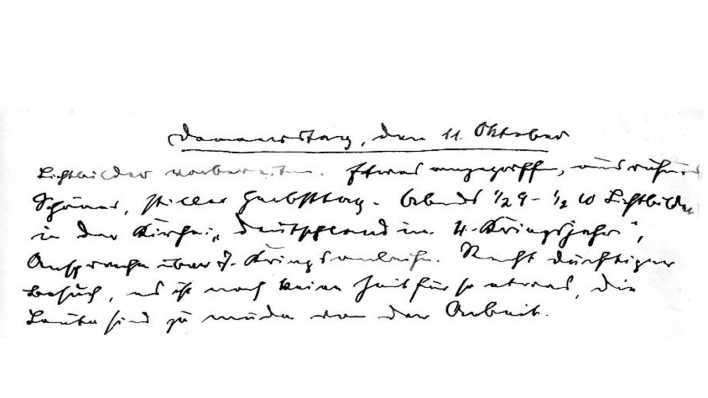 Donnerstag, den 11. Oktober
Lichtbilder vorbereiten. Etwas angegriffen,
Schöner, stiller Herbsttag. Abends ½ 9 - ½ 10 Lichtbilder
in der Kirche: „Deutschland im 4. Kriegsjahr",
Ansprache über 7. Kriegsanleihe. Recht dürftiger
Besuch, es ist noch keine Zeit für so etwas, die
Leute sind zu müde von der Arbeit.